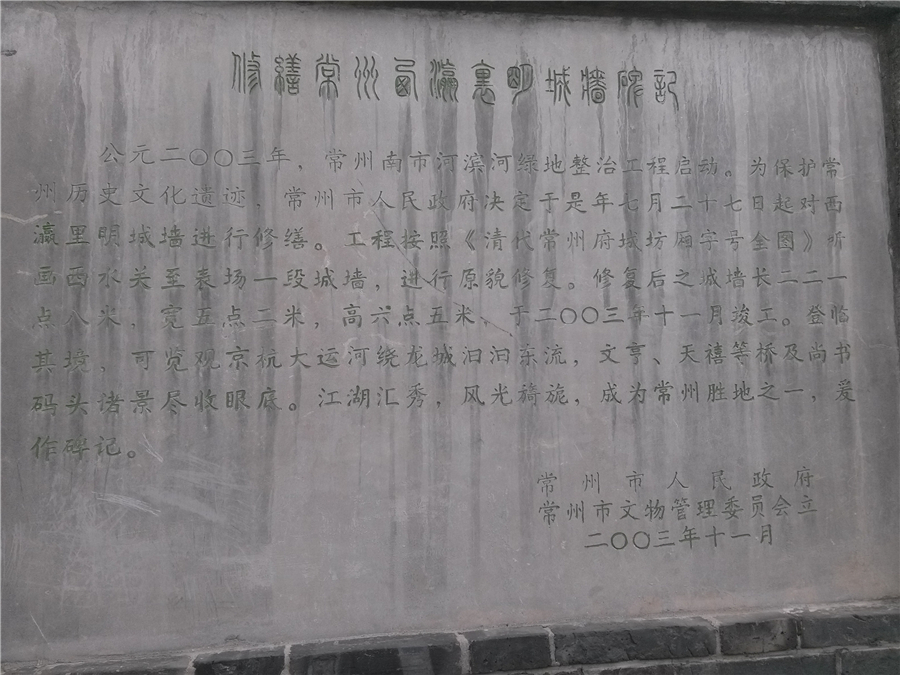 修繕常州西瀛裏明城牆碑記
公元二〇〇三年，常州南市河滨河绿地整治工程启动。为保护常
州历史文化遗迹，常州市人民政府决定于是年七月二十七日起对西
瀛里明城墙进行修缮。工程按照《清代常州府城坊厢字号全图》所
画西水关至表场一段城墙，进行原貌修复。修复后之城墙长二二一
点八米，宽五点二米，高六点五米，于二〇〇三年十一月竣工。登临
其境，可览观京杭大运河绕龙城汩汩东流，文亨、天禧等桥及尚书
码头诸景尽收眼底。江湖汇秀，风光旖旎，成为常州胜地之一，爰
作碑记。
常州市人民政府
常州市文物管理委员会立
二〇〇三年十一月